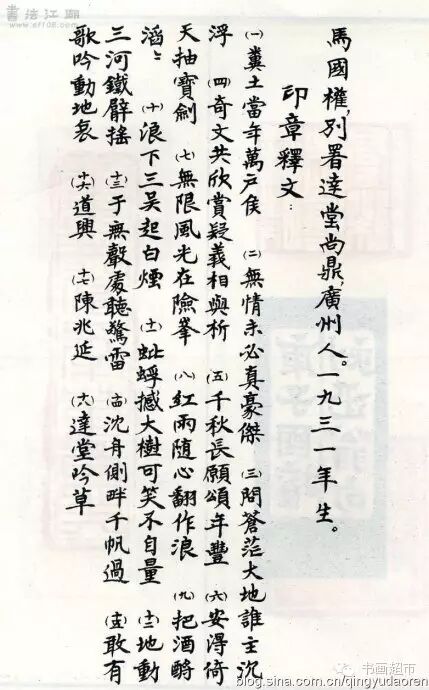 書法江湖
www.sf108.com
馬國權，別署達堂尚鼎，廣州人。一九三一年生。
印章釋文：
(一) 糞土當年萬戶侯 (二) 無情未必真豪傑 (三) 問蒼茫大地誰主沉
浮 (四) 奇文共欣賞疑義相與析 (五) 千秋長願頌年豐 (六) 安得倚
天抽寶劍 (七) 無限風光在險峯 (八) 紅雨隨心翻作浪 (九) 把酒酹
滔〻 (十) 浪下三吳起白煙 (十一) 蚍蜉撼大樹可笑不自量 (十二) 地動
三河鐵臂搖 (十三) 于無聲處聽驚雷 (十四) 沈舟側畔千帆過 (十五) 敢有
歌吟動地哀 (十六) 道興 (十七) 陳兆延 (十八) 達堂吟草
书画超市
blog.sina.com.cn/qingyudaoren